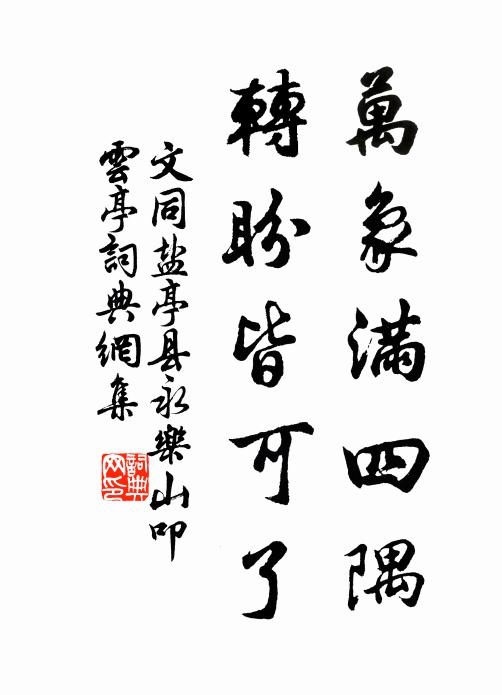 萬象滿四隅
轉盼皆可了
文同盐亭县永樂山叩
雲亭詞典網集
詞典
网印